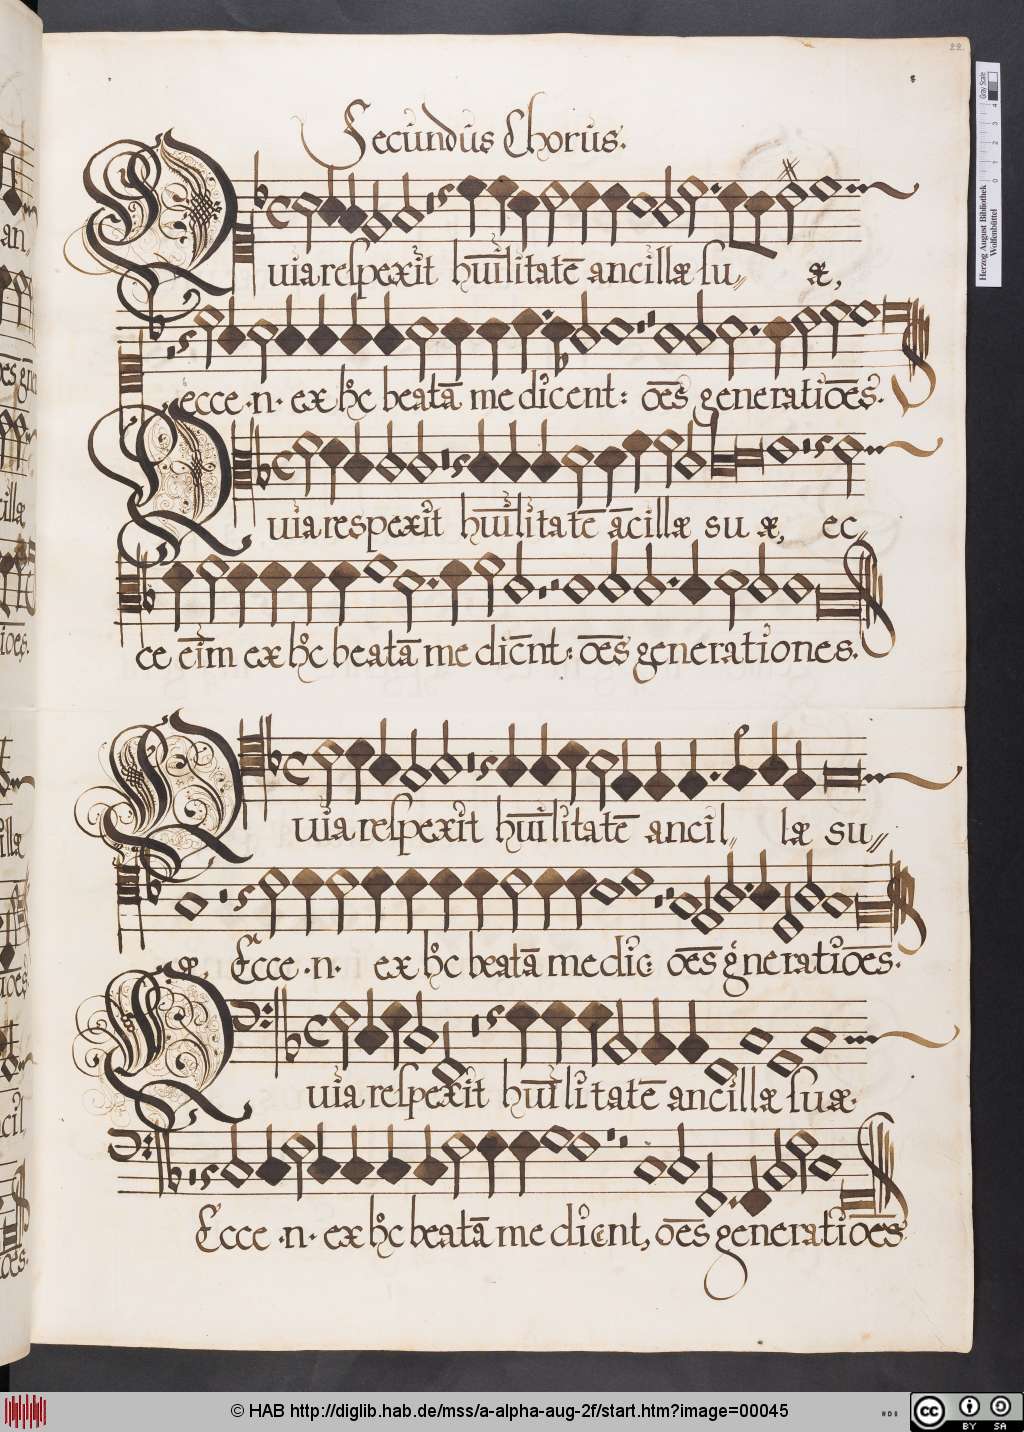 22.
Secundus Chorus.
Quia respexit hūilitatē ancillæ su〃 æ,
ecce .n. ex hc beatā me dicent: oēs generatiōēs.
Quia respexit hūilitatē ācillæ su æ, ec〃
ce eīm ex hc beatā me diēnt: oēs generationes.
Quia respexit hūilitatē ancil〃 læ su〃
æ, Ecce .n. ex hc beatā me dic: oēs gneratiōēs.
Quia respexit hūilitatē ancillæ suæ.
Ecce .n. ex hc beatā me dicent, oēs generatiōēs
Gray Scale
0 1 2 3 4
Herzog August Bibliothek
Wolfenbüttel
© HAB http://diglib.hab.de/mss/a-alpha-aug-2f/start.htm?image=00045
cc BY SA